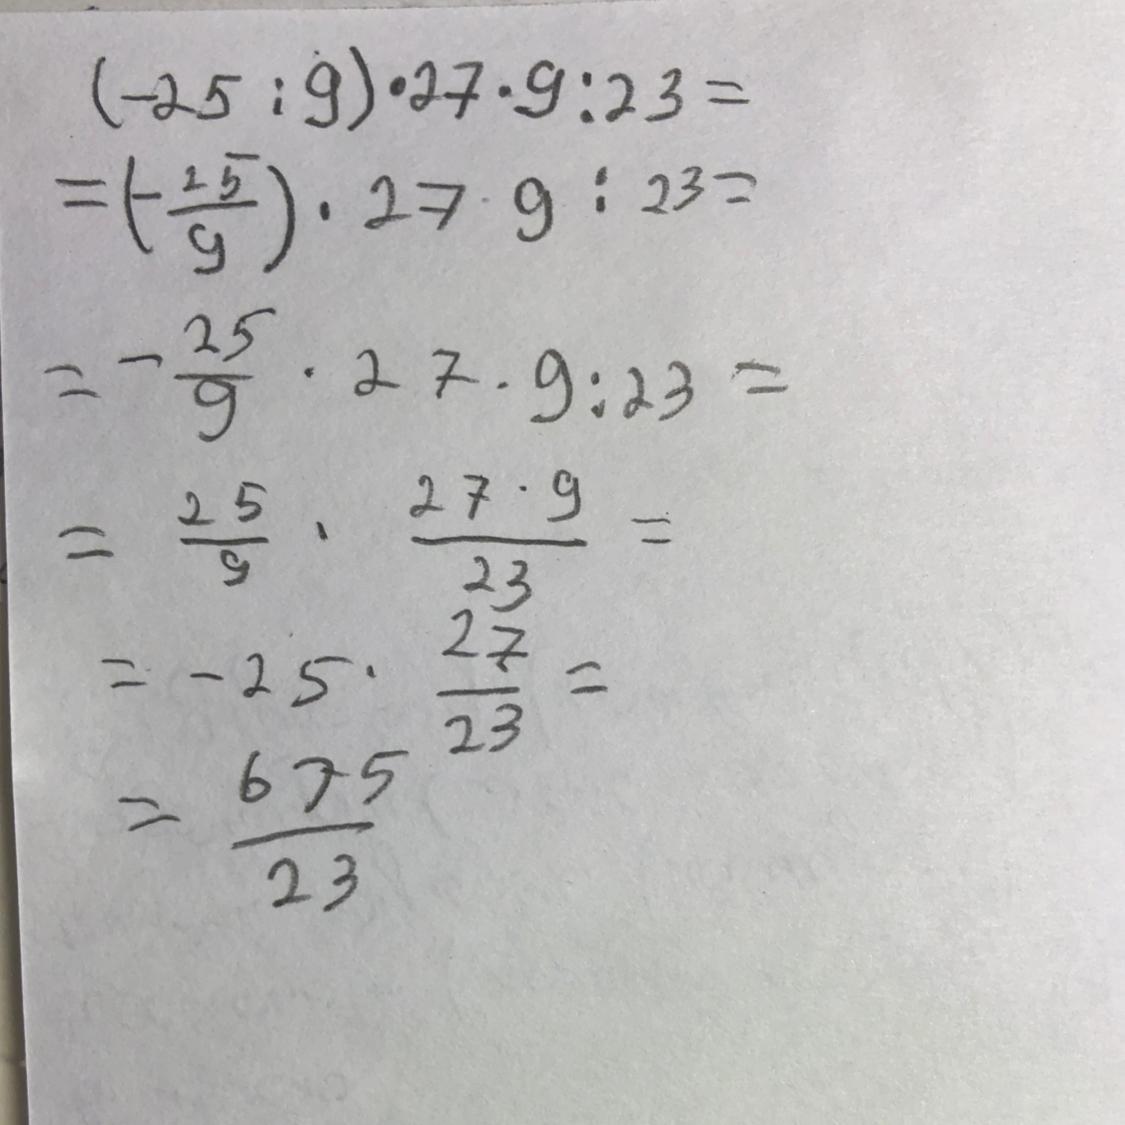 (-25:9)·27·9:23=
=(-25/9)·27·9:23=
=-25/9·27·9:23=
=25/9·(27·9)/23=
=-25·27/23=
=675/23